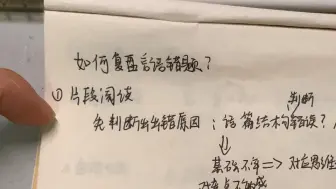 如何复盘言语错题？
① 片段阅读
判断
先判断出出错原因：语篇结构错误？
↓
基础不牢 => 对应